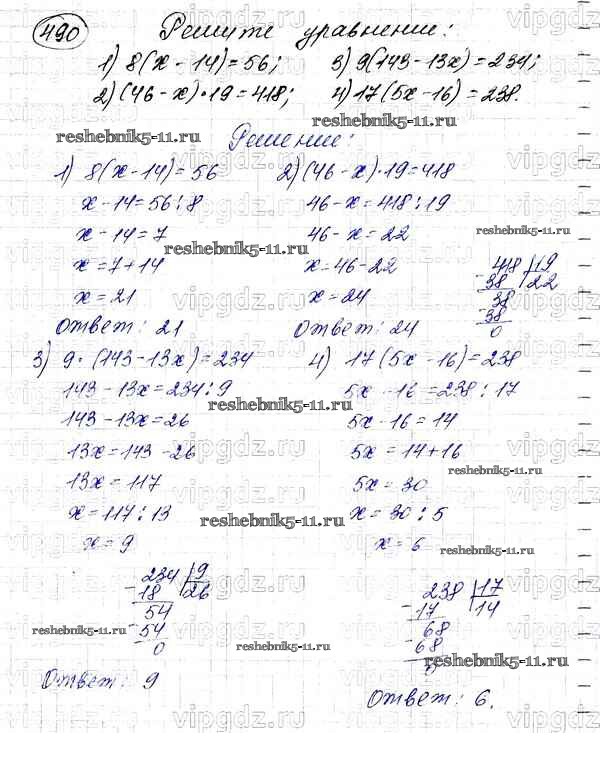 490 Решите уравнение:
1) 8(x - 14) = 56; 3) 9(143 - 13x) = 234;
2) (46 - x) · 19 = 418; 4) 17(5x - 16) = 238.
reshebnik5-11.ru Решение:
1) 8(x - 14) = 56
x - 14 = 56 : 8
x - 14 = 7
x = 7 + 14
x = 21
Ответ: 21
2) (46 - x) · 19 = 418
46 - x = 418 : 19
46 - x = 22
x = 46 - 22
x = 24
Ответ: 24
reshebnik5-11.ru
reshebnik5-11.ru
418 19
- 38 22
38
- 38
0
3) 9 · (143 - 13x) = 234
143 - 13x = 234 : 9
143 - 13x = 26
13x = 143 - 26
13x = 117
x = 117 : 13
x = 9
reshebnik5-11.ru
reshebnik5-11.ru
234 9
- 18 26
54
- 54
0
reshebnik5-11.ru
Ответ: 9
4) 17(5x - 16) = 238
5x - 16 = 238 : 17
5x - 16 = 14
5x = 14 + 16
5x = 30
x = 30 : 5
x = 6
reshebnik5-11.ru
238 17
- 17 14
68
- 68
0
reshebnik5-11.ru
reshebnik5-11.ru
Ответ: 6.
vipgdz.ru